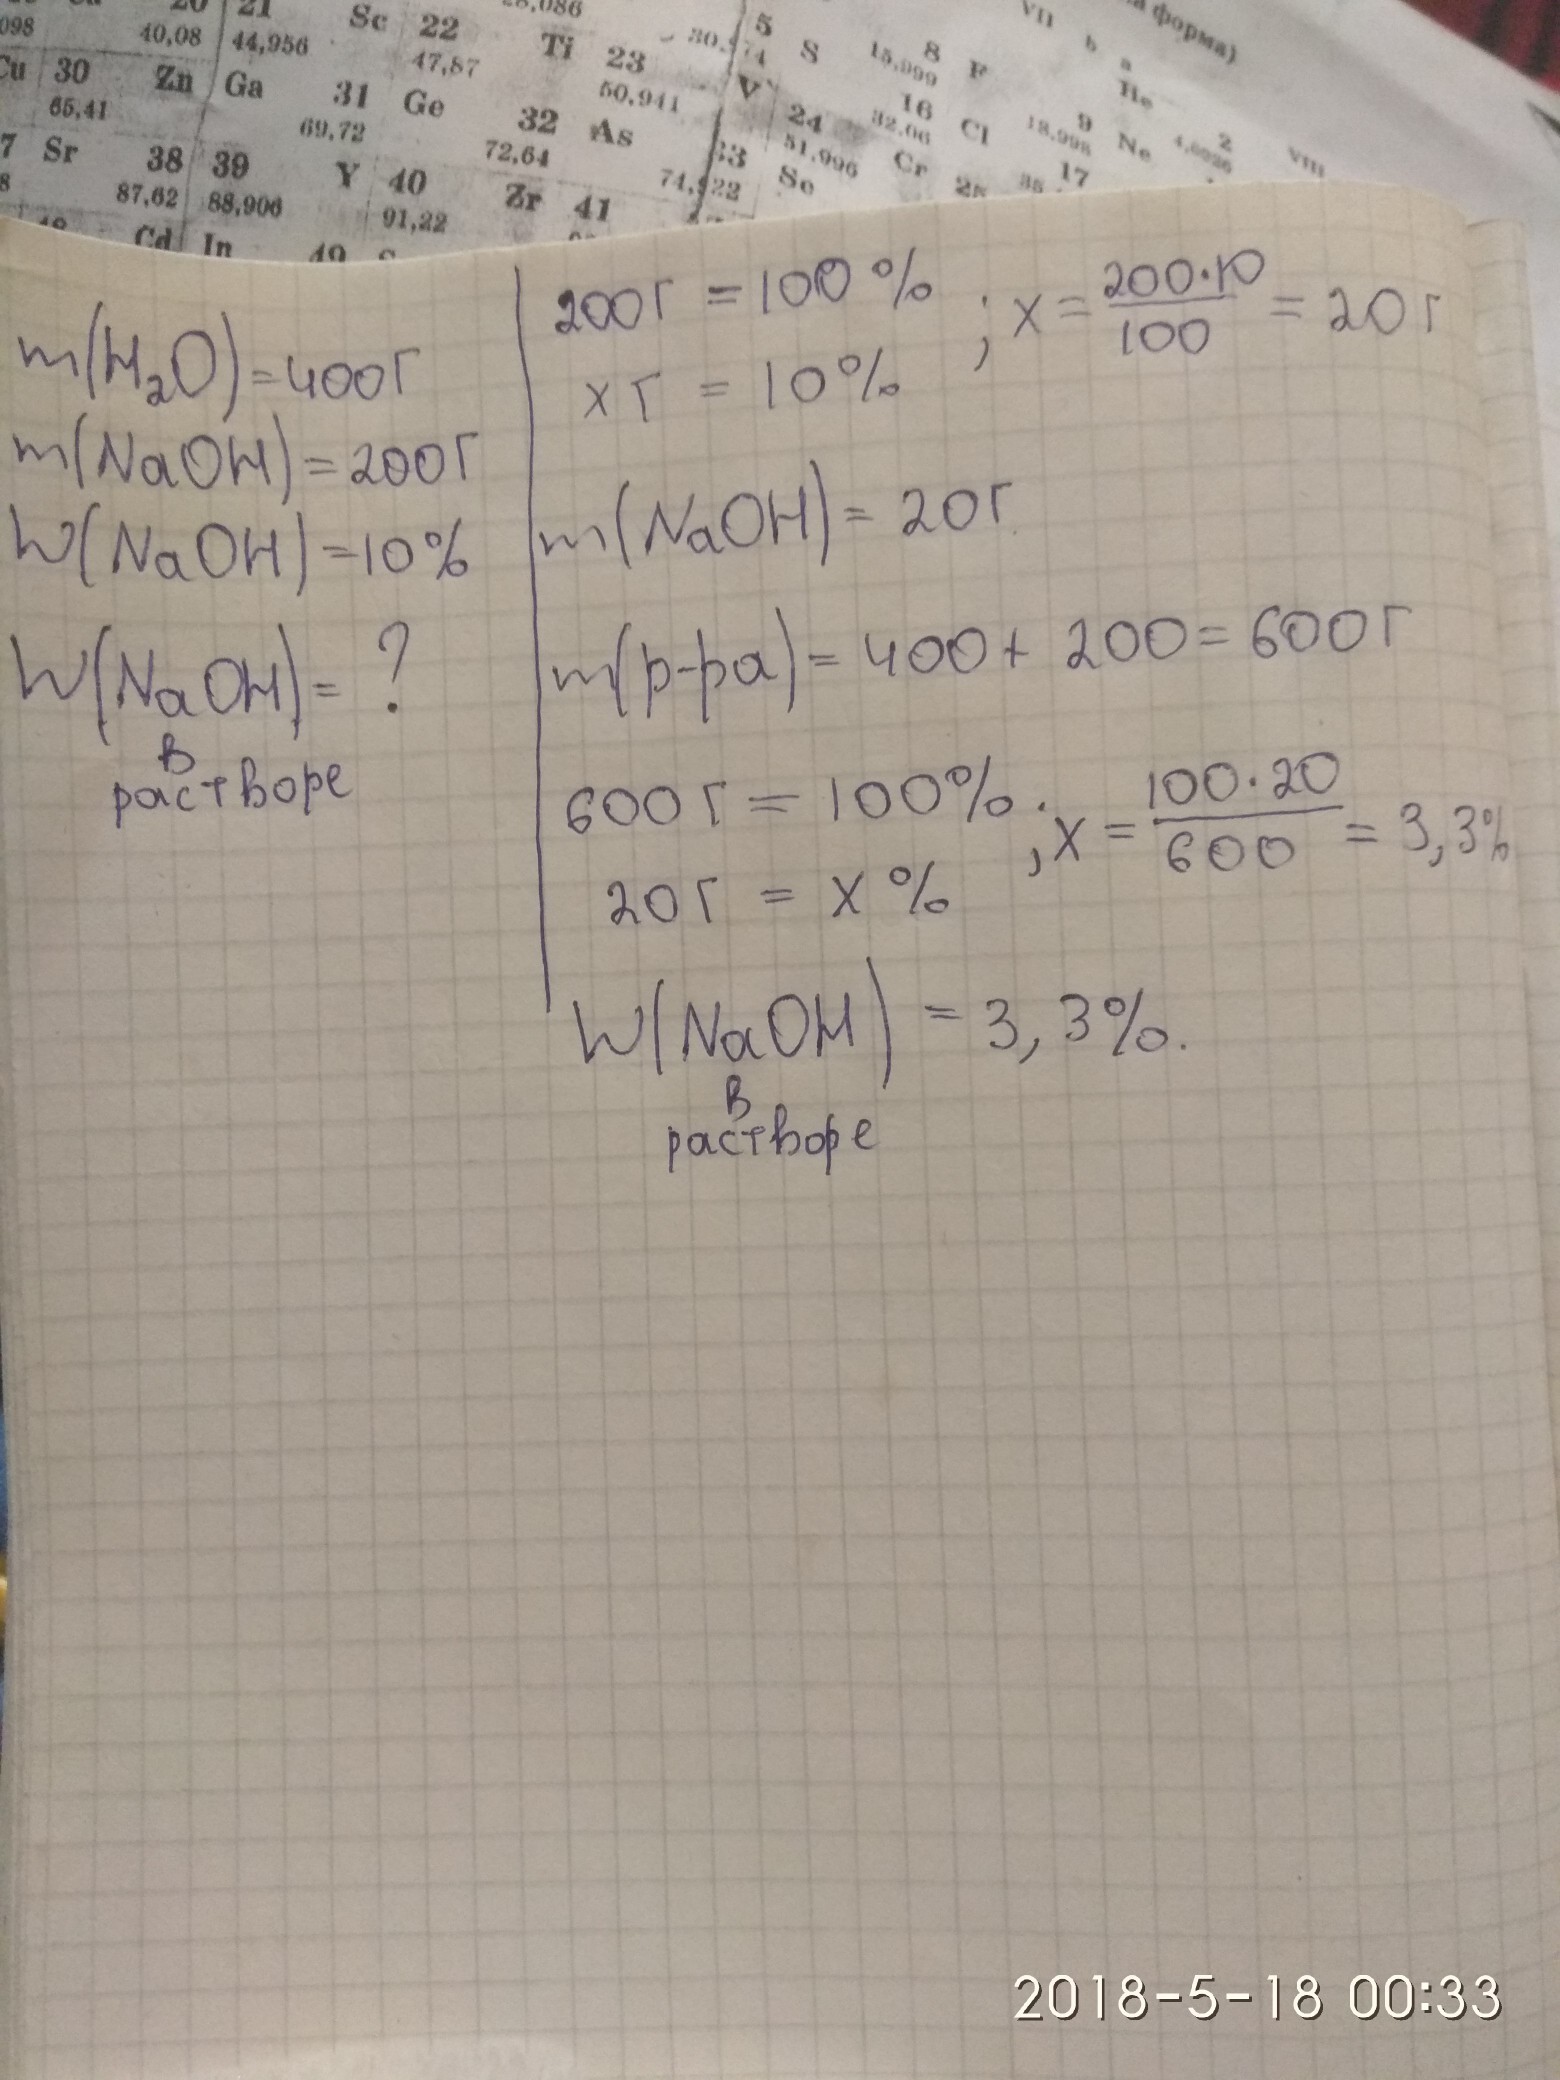 20 21 Sc 22 28,086 5 8 VII
098 40,08 44,956 47,87 Ti 23 30,974 S 15,999 F b а форма)
Cu 30 Zn Ga 31 Ge 50,941 V 24 16 9 He
65,41 69,72 32 As 51,996 32,06 Cl 18,998 Ne 2 4,0026 VIII
7 Sr 38 39 Y 40 72,64 33 Se Cr 17
8 87,62 88,906 91,22 Zr 41 74,922
Cd In 49
m(H₂O)=400г
m(NaOH)=200г
W(NaOH)=10%
W(NaOH)=?
в
растворе
200г = 100% ; x = 200·10/100 = 20г
x г = 10%
m(NaOH)= 20г.
m(р-ра)= 400+ 200= 600г
600г = 100% ; x = 100·20/600 = 3,3%
20г = x %
W(NaOH) = 3,3%.
в
растворе
2018-5-18 00:33